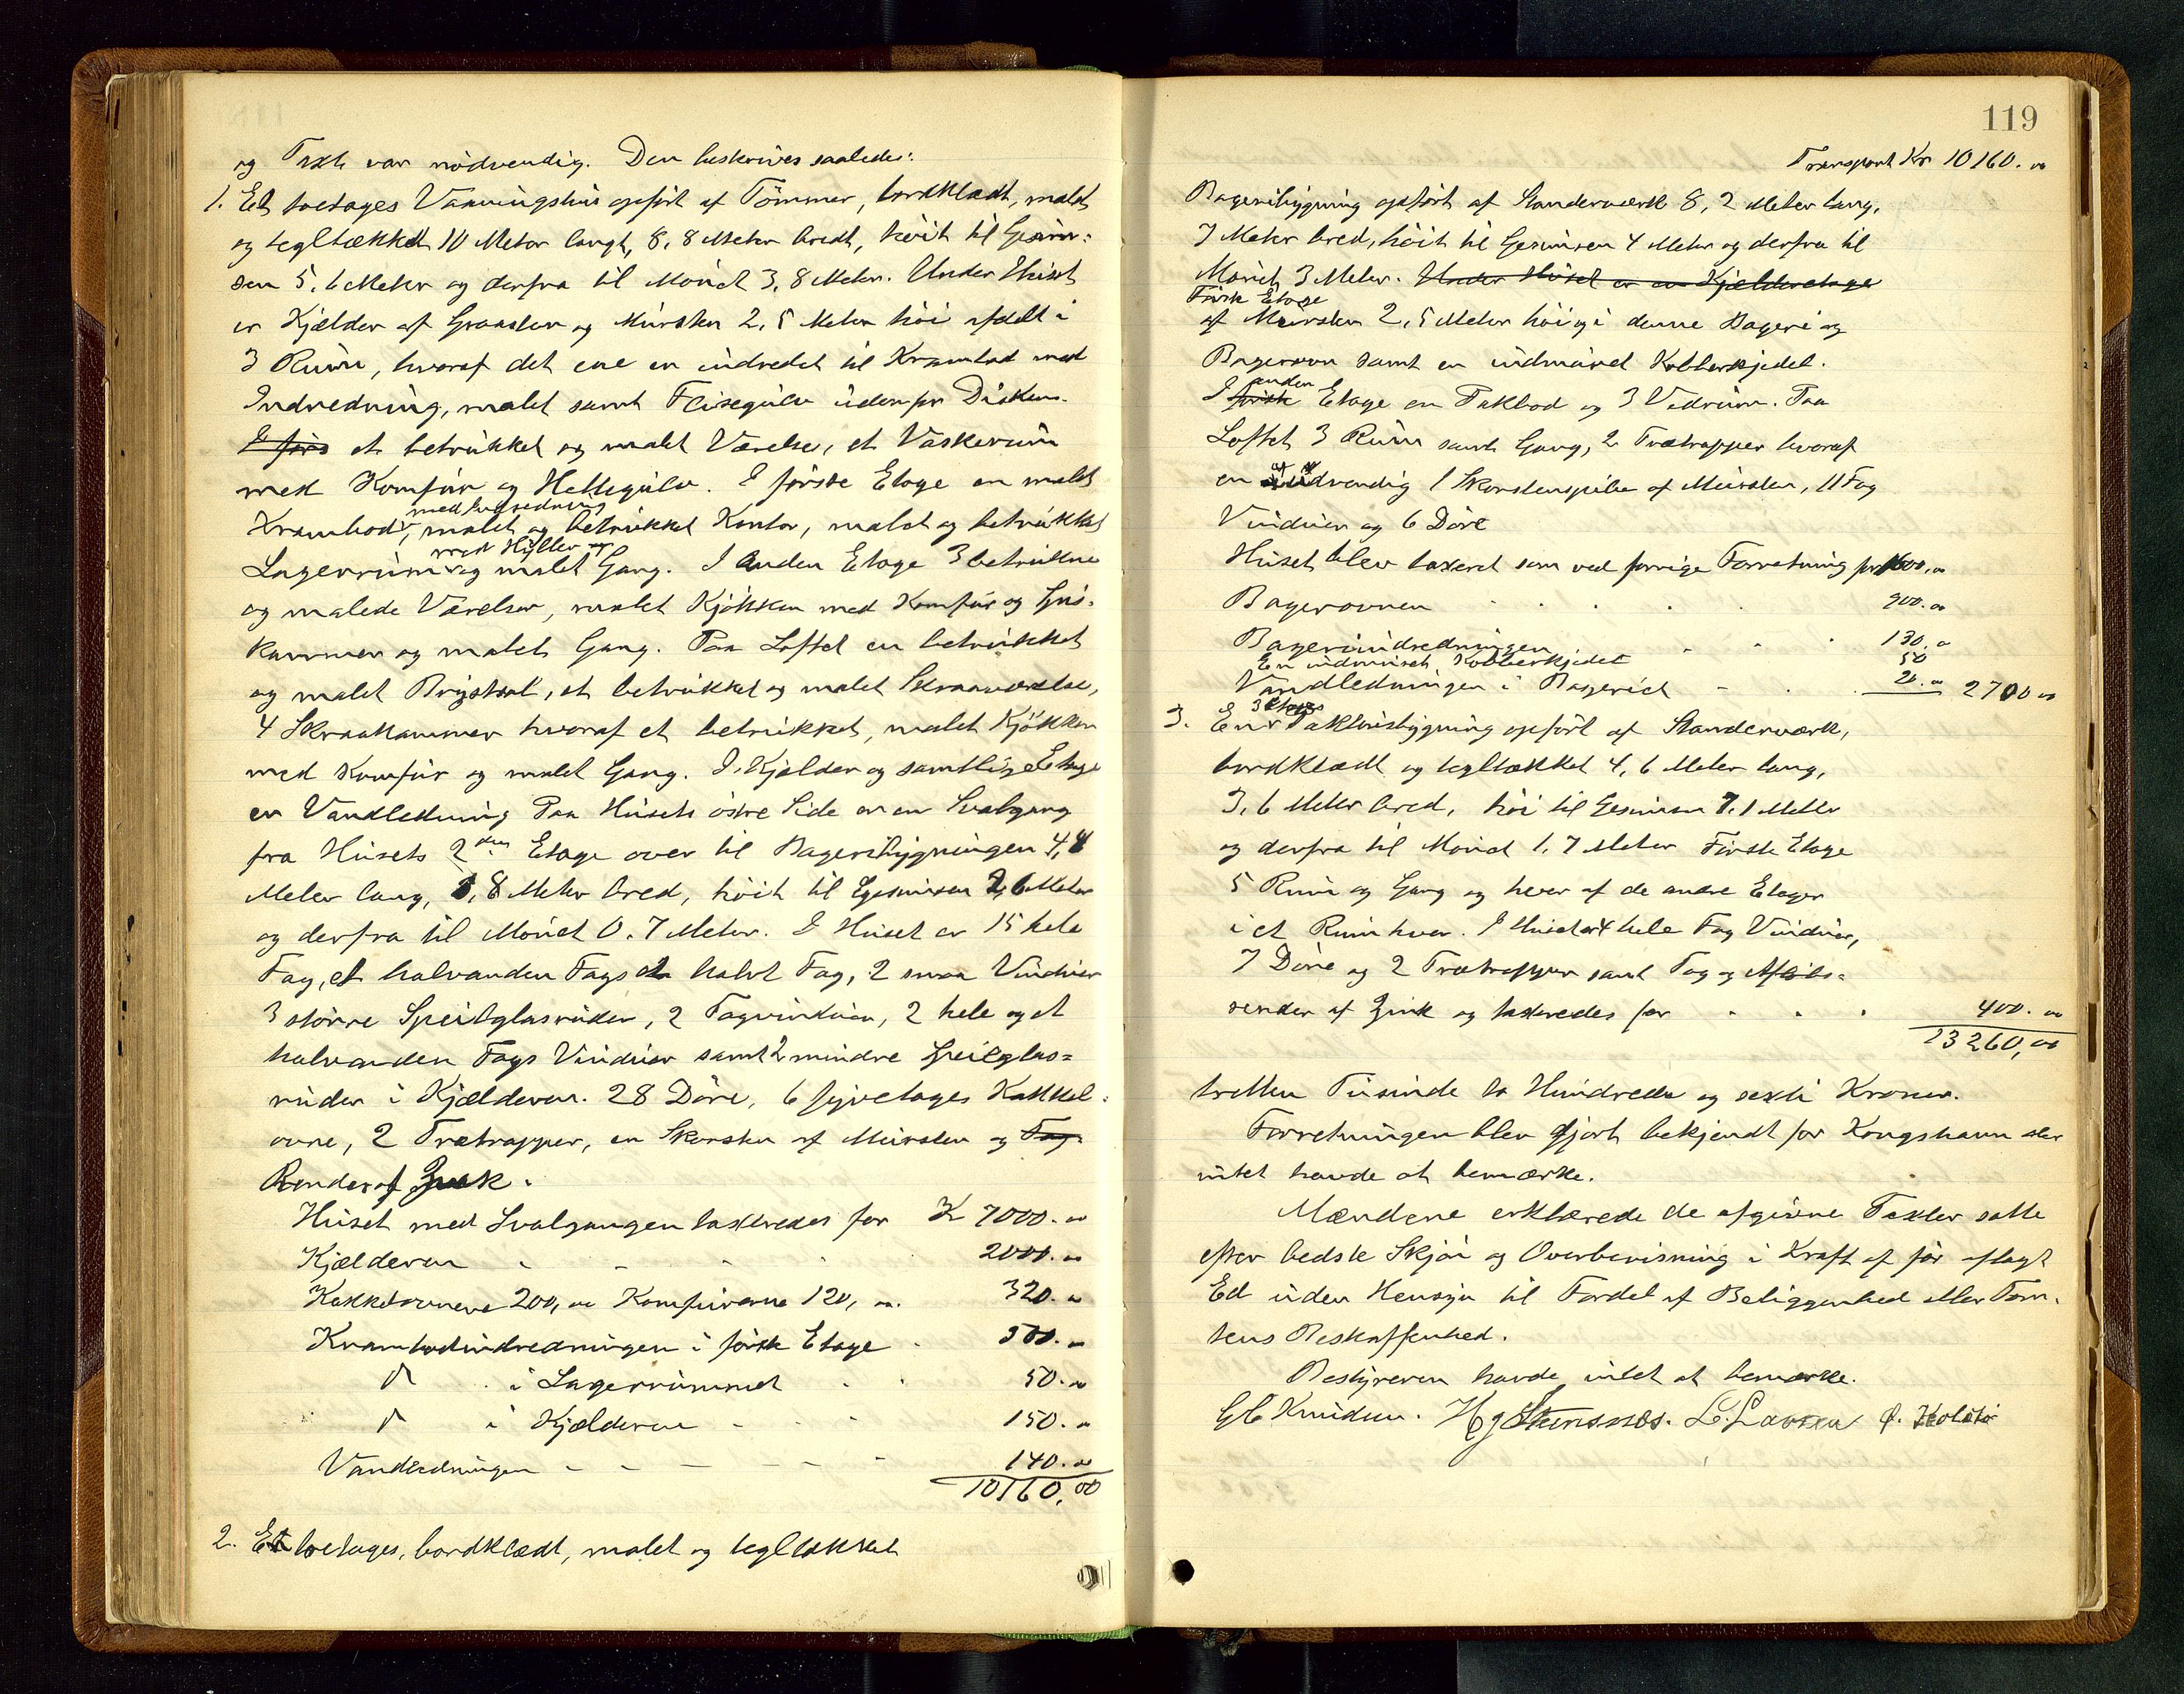 og Taxt var nödvendig. Den beskrives saaledes:
1. Et toetages Vaaningshus opfört af Tömmer, bordklædt, malet
og tegltækket 10 Meter langt, 8,8 Meter bredt, höit til Gesim-
sen 5,6 Meter og derfra til Mönet 3,8 Meter. Under Huset
er Kjælder af Graasten og Mursten 2,5 Meter höi afdelt i
3 Rum, hvoraf det ene er indredet til Krambod med
Indredning, malet samt Flisegulv udenfor Disken.
I förs et betrukket og malet Værelse, et Vaskerum
med Komfur og Hellegulv. I förste Etage en malet
med Indredning
Krambod, malet og betrukket Kontor, malet og betrukket
med Hyller og
Lagerrum og malet Gang. I anden Etage 3 betrukne
og malede Værelser, malet Kjökken med Komfur og Spis-
kammer og malet Gang. Paa Loftet en betrukket
og malet Brystsal, et betrukket og malet Skraaværelse,
4 Skraakammer hvoraf et betrukket, malet Kjökken
med Komfur og malet Gang. I Kjælder og samtlige Etager
er Vandledning Paa Husets östre Side er en Svalgang
fra Husets 2den Etage over til Bageribygningen 4,4
Meter lang, 1,8 Meter bred, höit til Gesimsen 2,6 Meter
og derfra til Mönet 0.7 Meter. I Huset er 15 hele
Fag, et halvanden Fags et halvt Fag, 2 smaa Vinduer
3 större Speilglasruder, 2 Tagvinduer, 2 hele og et
halvanden Fags Vinduer samt 2 mindre Speilglas=
ruder i Kjælderen. 28 Döre, 6 fyretages Kakkel-
ovne, 2 Trætrapper, en Skorsten af Mursten og Tag
Render af Zink.
Huset med Svalgangen taxeredes for Kr 7000. 00
Kjælderen 2000. 00
Kakkelovnene 200, 00 Komfurerne 120, 00. 320. 00
Krambodindredningen i förste Etage 500. 00
" i Lagerrummet 50. 00
" i Kjælderen 150. 00
Vandledningen 140. 00
10160,00
2. Et toetages, bordklædt, malet og tegltækket
119
Transport Kr 10160. 00
Bageribygning opfört af Standerværk 8,2 Meter lang,
7 Meter bred, höit til Gesimsen 4 Meter og derfra til
Mönet 3 Meter. Under Huset er en Kjælderetage
Förste Etage
af Mursten 2,5 Meter höi og i denne Bageri og
Bagerovn samt en indmuret Kobberkjedel.
anden
I förste Etage en Pakbod og 3 Vedrum. Paa
Loftet 3 Rum samt Gang, 2 Trætrapper hvoraf
en udvendig 1 Skorstenspibe af Mursten, 11 Fag
Vinduer og 6 Döre
Huset blev taxeret som ved forrige Forretning for 1600,00
Bagerovnen 900. 00
Bageriindredningen 130. 00
En indmuret Kobberkjedel 50
Vandledningen i Bageriet 20. 00 2700 00
3 Etages
3. En Pakhusbygning opfört af Standerværk,
bordklædt og tegltækket 4,6 Meter lang,
3,6 Meter bred, höi til Gesimsen 7,1 Meter
og derfra til Mönet 1,7 Meter Förste Etage
5 Rum og Gang og hver af de andre Etager
i et Rum hver. I Huset er 4 hele Fag Vinduer,
7 Döre og 2 Trætrapper samt Tag og Aflöbs-
render af Zink og taxeredes for 400. 00
13260,00
tretten Tusinde to Hundrede og sexti Kroner.
Forretningen blev gjort bekjendt for Kongshavn der
intet havde at bemærke.
Mændene erklærede de afgivne Taxter satte
efter bedste Skjön og Overbevisning i Kraft af för aflagt
Ed uden Hensyn til Fordel af Beliggenhed eller Tom-
tens Beskaffenhed.
Bestyreren havde intet at bemærke.
G C Knudsen. H g Stensnes. L. Larsen O. Holstö